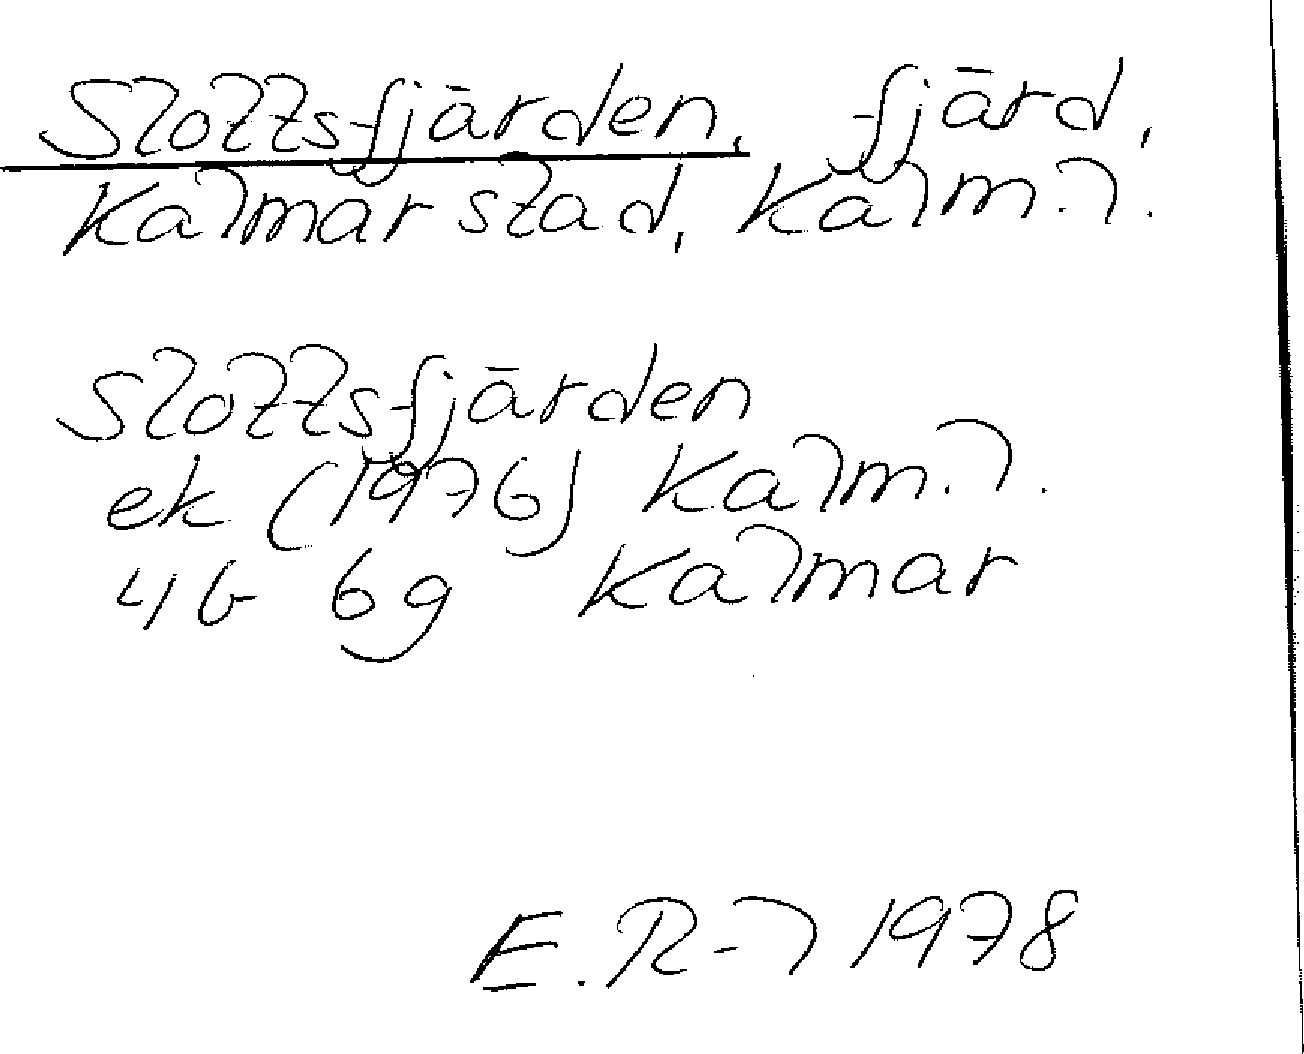 Slottsfjärden, fjärd,
Kalmar stad, Kalm.l.
Slottsfjärden
ek (1976) Kalm.l.
4G 6g Kalmar
E.R-l 1978